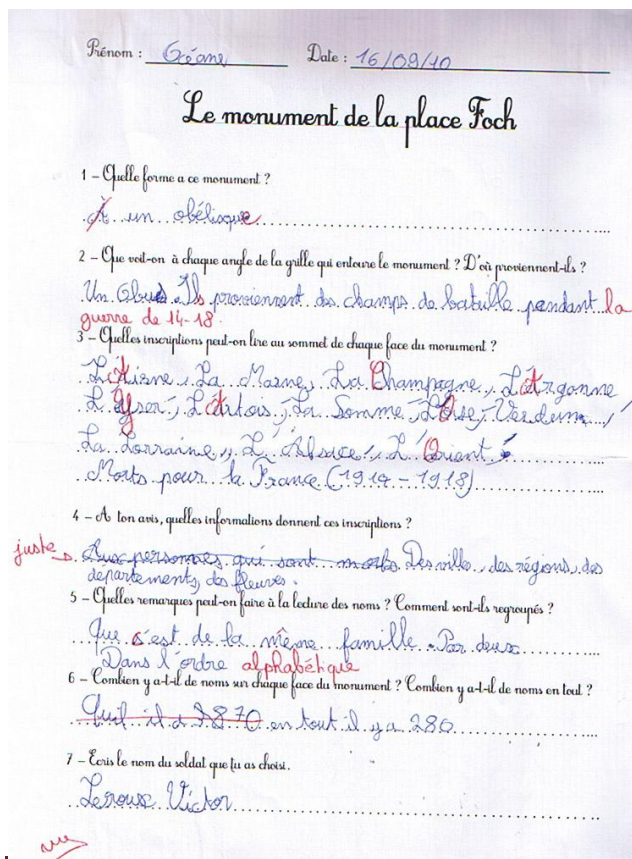 Prénom : Océane Date : 16/09/10
Le monument de la place Foch
1 – Quelle forme a ce monument ?
À un obélisque
2 – Que voit-on à chaque angle de la grille qui entoure le monument ? D'où proviennent-ils ?
Un Obus. Ils proviennent des champs de bataille pendant la
guerre de 14-18.
3 – Quelles inscriptions peut-on lire au sommet de chaque face du monument ?
L'Aisne, La Marne, La Champagne, L'Argonne,
L'Yser, L'Artois, La Somme, L'Oise, Verdun,
La Lorraine, L'Alsace, L'Orient,
Morts pour la France (1914 - 1918)
4 – A ton avis, quelles informations donnent ces inscriptions ?
juste Aux personnes qui sont morts. Des ville, des régions, des
départements, des fleuves.
5 – Quelles remarques peut-on faire à la lecture des noms ? Comment sont-ils regroupés ?
Que c'est de la même famille. Par deux
Dans l'ordre alphabétique
6 – Combien y a-t-il de noms sur chaque face du monument ? Combien y a-t-il de noms en tout ?
Quil il a 70 en tout il y a 280
7 – Ecris le nom du soldat que tu as choisi.
Leroux Victor
vu